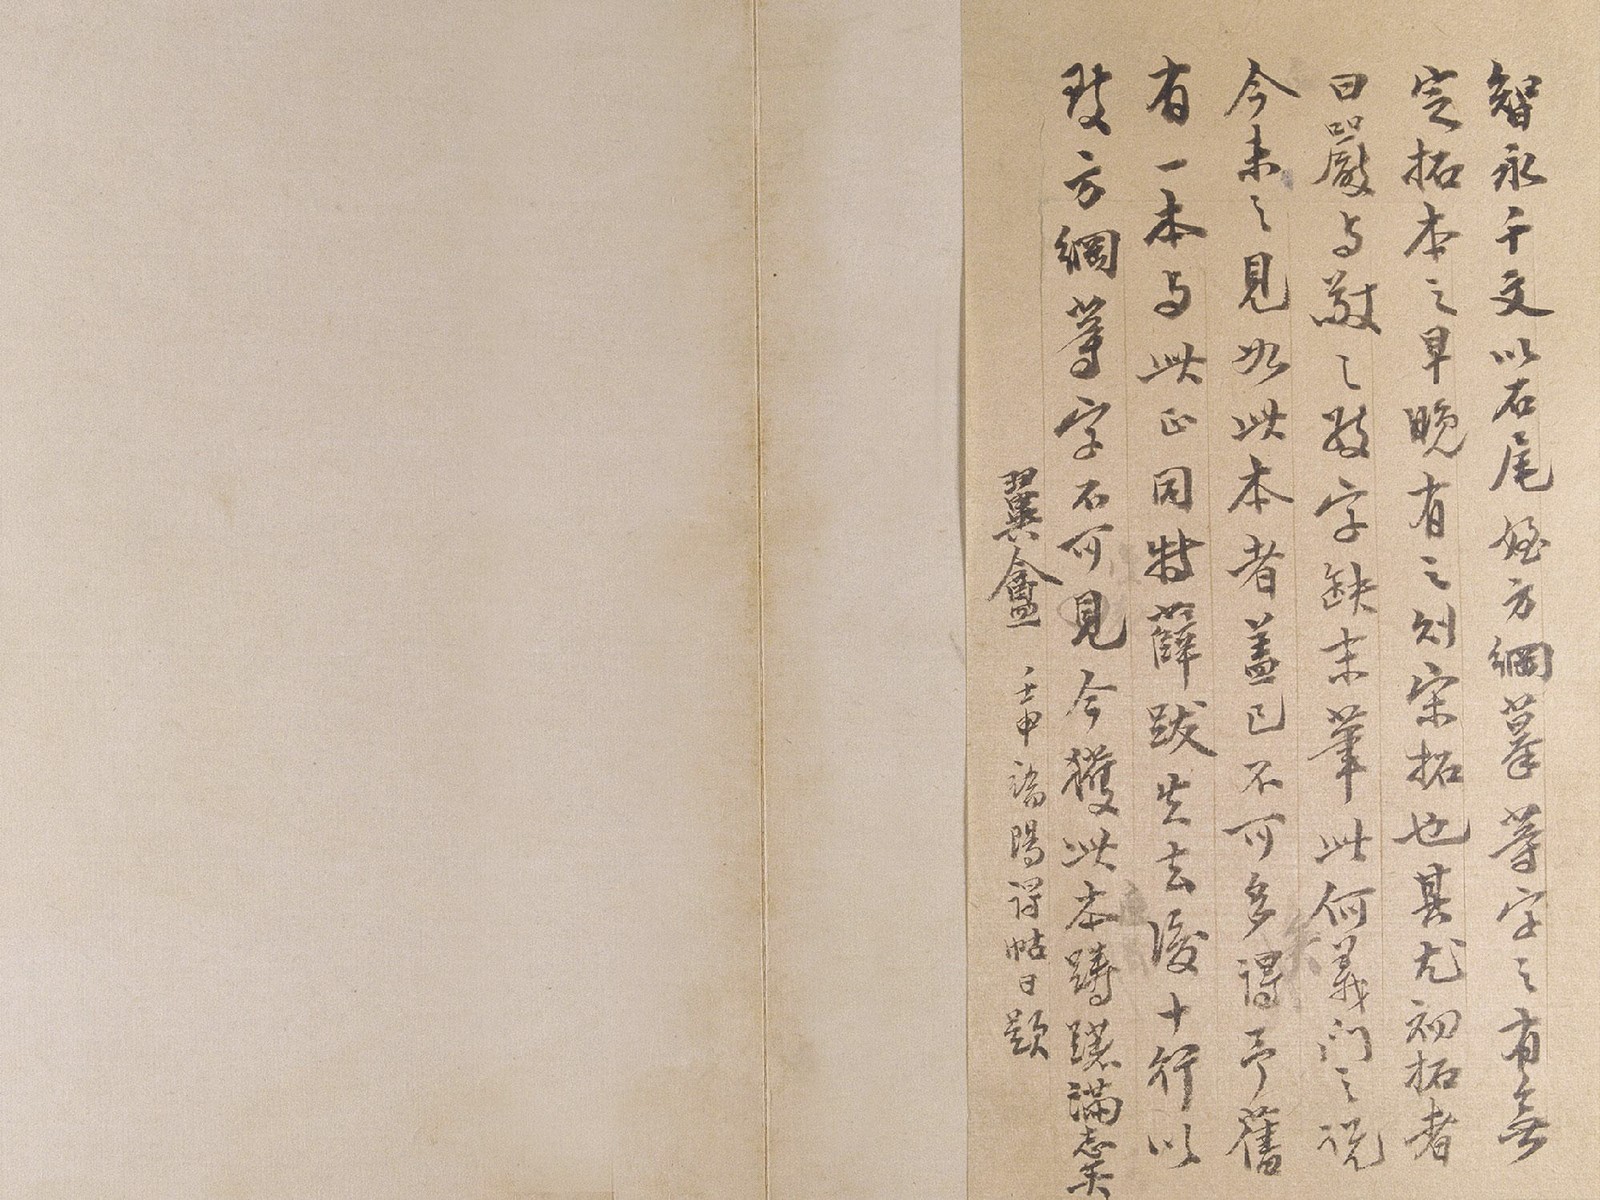 智永千文以石尾姪方綱摹等字之有無
定拓本之早晚有之則宋拓也其尤初拓者
曰嚴与敬之數字缺末筆此何義門之說
今未之見如此本者蓋已不可多得予舊
有一本与此正同特薛跋失去後十行以
致方綱等字不可見今獲此本躊躇滿志矣
翼盦 壬申 陽得帖日題